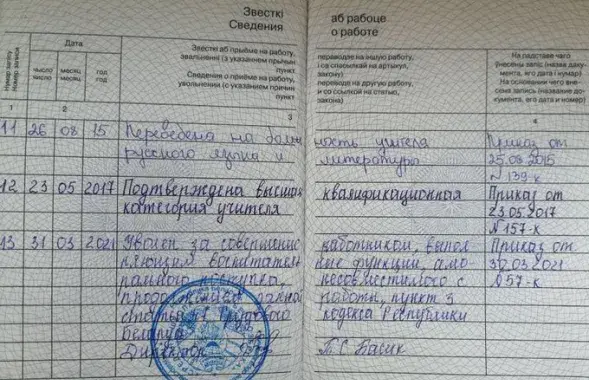 Звесткі аб рабоце
Сведения о работе
Нумар запісу
Номер записи
Дата
число месяц год
Звесткі аб прыёме на работу,
звальненні (з указаннем прычын
пункт
Сведения о приеме на работу,
увольнении (с указанием причин
пункт
переводзе на іншую работу,
і со ссылкой на статью,
закона)
переводе на другую работу,
На падставе чаго
ўнесены запіс (назва даку-
мента, яго дата і нумар)
На основании чего вне-
сена запись (название до-
кумента, его дата и номер)
1 2 3 4
11 26 08 15 Переведена на долж ность учителя Приказ от
русского языка и литературы 25.08.2015
N 139-к
12 23 05 2017 Подтверждена высшая квалификационная Приказ от
категория учителя 23.05.2017
N 157-к
13 31 03 2021 Уволен за совершение работником, выпол Приказ от
няющим воспитатель ные функции амо 30.03.2021
рального поступка, несовместимого с N 57-к
продолжением данной работы, пункт 3
статьи 47 Трудового кодекса Республики
Беларусь
Директор Т.С. Басик